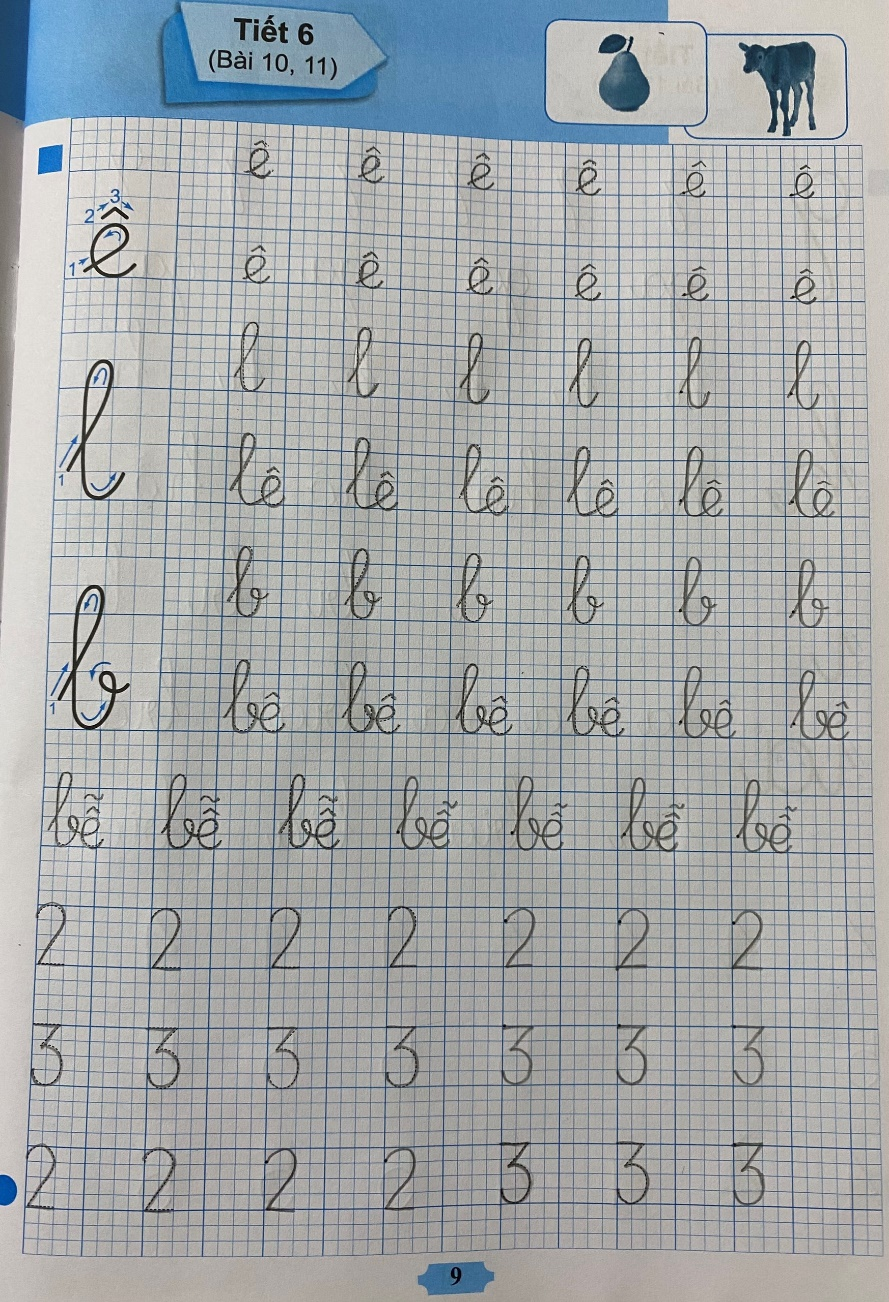 Tiết 6
(Bài 10, 11)
ê ê ê ê ê ê
2 3
1 ê
ê ê ê ê ê ê
l l l l l l
1 l
lê lê lê lê lê lê
b b b b b b
1 b
bê bê bê bê bê bê
bễ bễ bễ bễ bễ bễ bễ
2 2 2 2 2 2 2
3 3 3 3 3 3 3
2 2 2 2 3 3 3
9